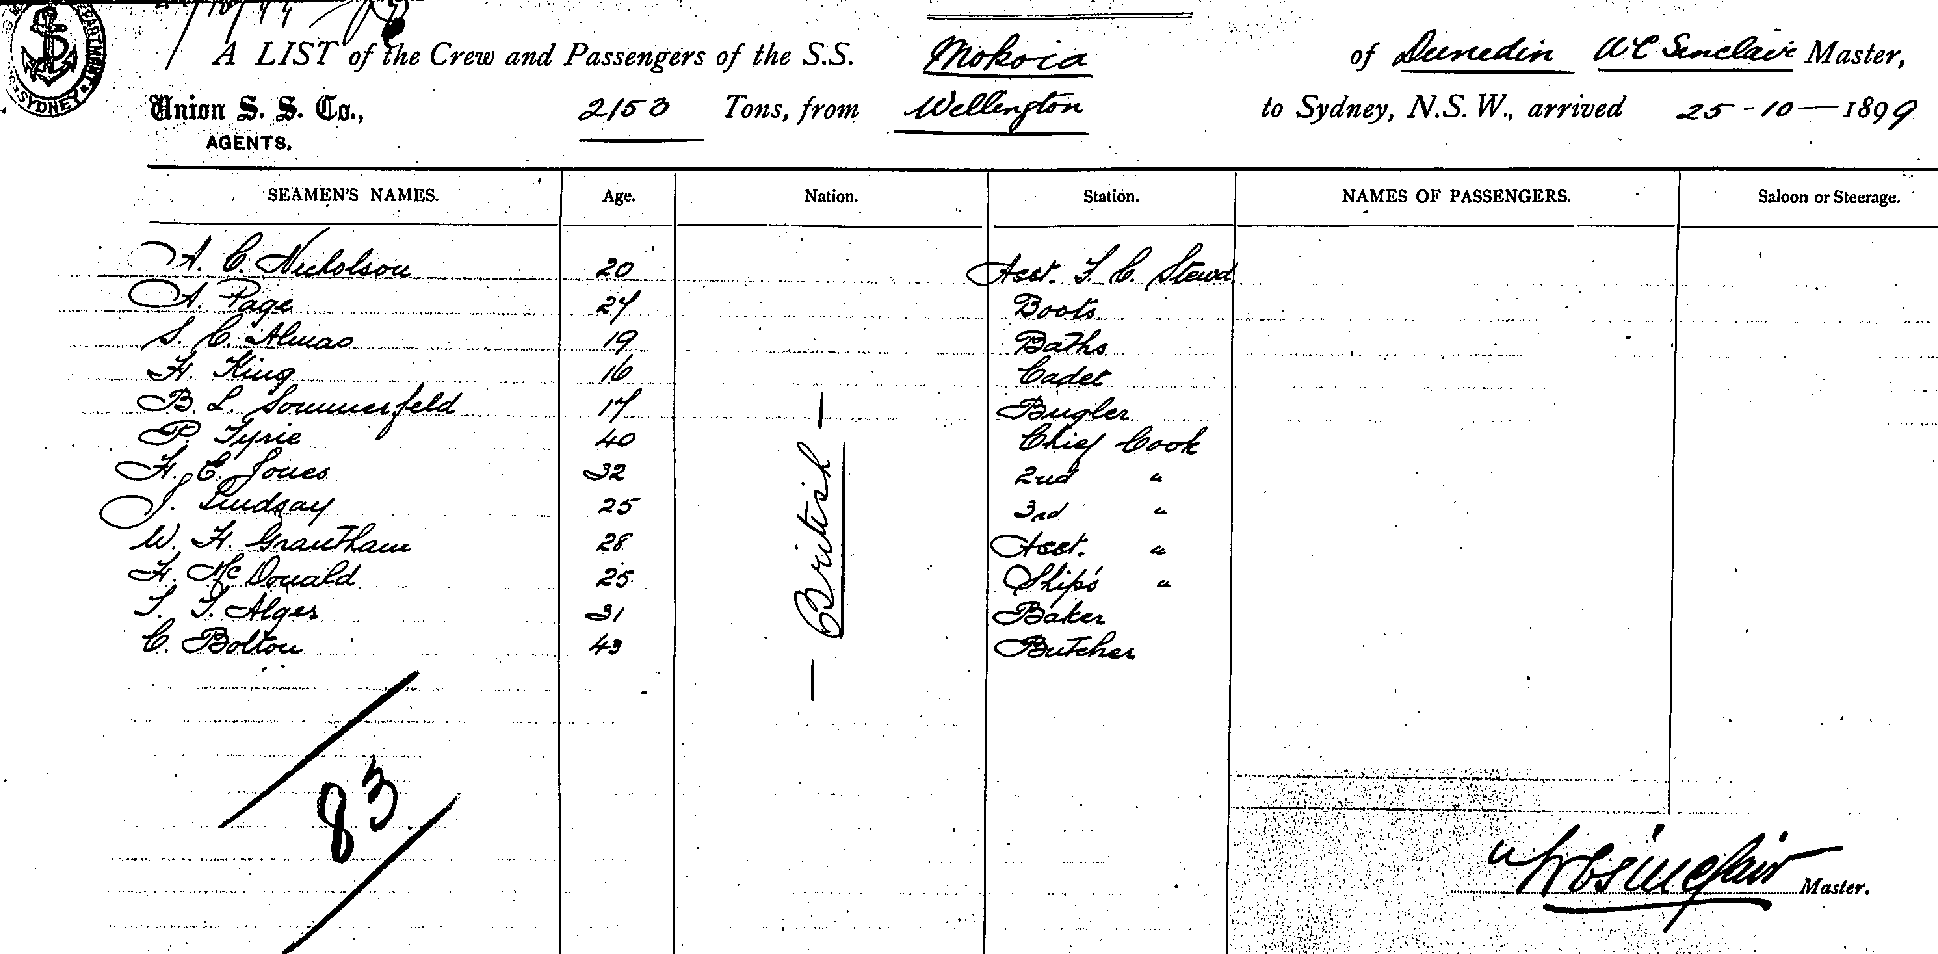 A LIST of the Crew and Passengers of the S.S. Mokoia of Dunedin W C Sinclair Master,
Union S. S. Co., 2153 Tons, from Wellington to Sydney, N.S.W., arrived 25-10-1899
AGENTS.
SYDNEY
SEAMEN'S NAMES. Age. Nation. Station. NAMES OF PASSENGERS. Saloon or Steerage.
A. C. Nicholson 20 Asst. F. C. Stewd
A. Page 27 Boots
S. C. Almao 19 Baths
H. King 16 Cadet
B. L. Sommerfeld 17 Bugler
P. Fyrie 40 Chief Cook
H. E. Jones 32 2nd "
J. Lindsay 25 3rd "
W. H. Grantham 28 Asst. "
H. McDonald 25 Ship's "
T. T. Alger 31 Baker
C. Bolton 43 Butcher
- British -
83
W C Sinclair Master.